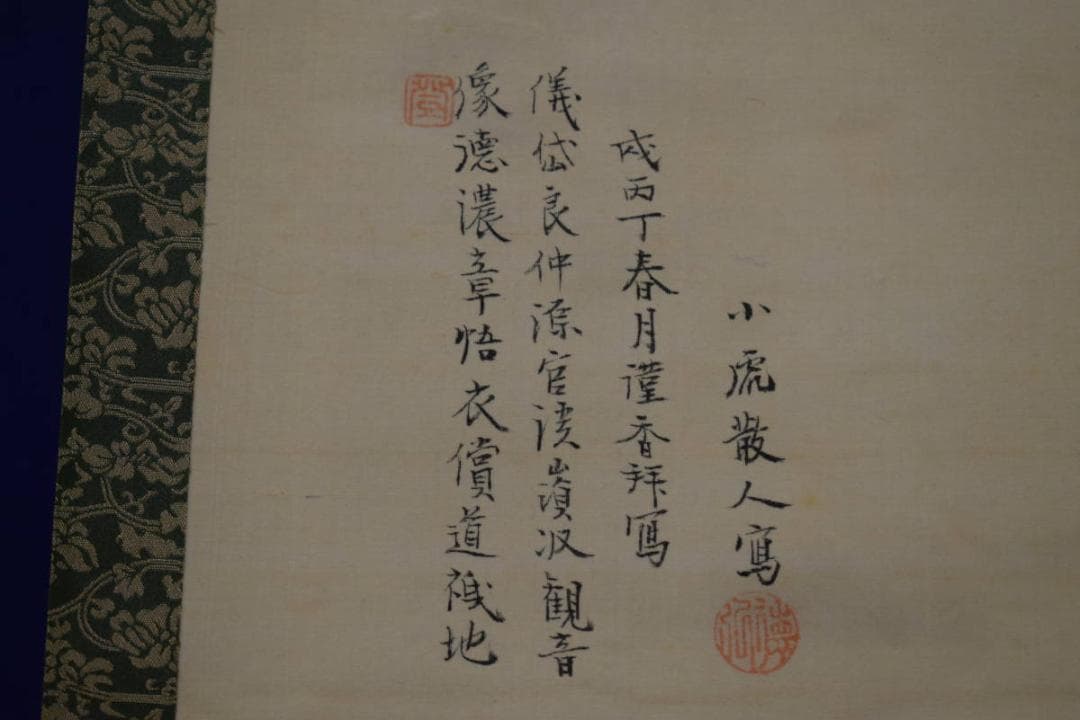 小虎散人寫
戊丙丁春月謹香拜寫
儀岱良仲源官觀音
像德濃章悟衣償道地